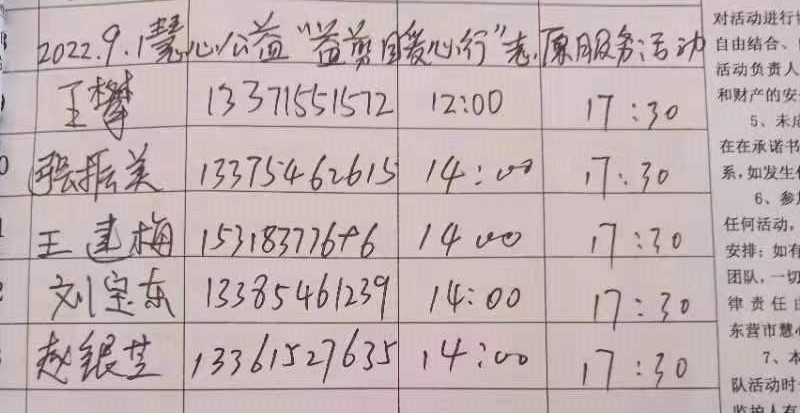 2022.9.1慧心公益"益剪团爱心行"志愿服务活动
王攀 13371551572 12:00 17:30
张振美 13375462615 14:00 17:30
王建梅 14 00 17:30
刘宝东 13385461239 14:00 17:30
赵银芝 13361527635 14:00 17:30
对活动进行
自由结合、
活动负责人
和财产的安
5、未成
在在承诺书
系,如发生
6、参加
任何活动,
安排;如有
团队,一切
律责任由
东营市慧心
7、本
队活动时
监护人在